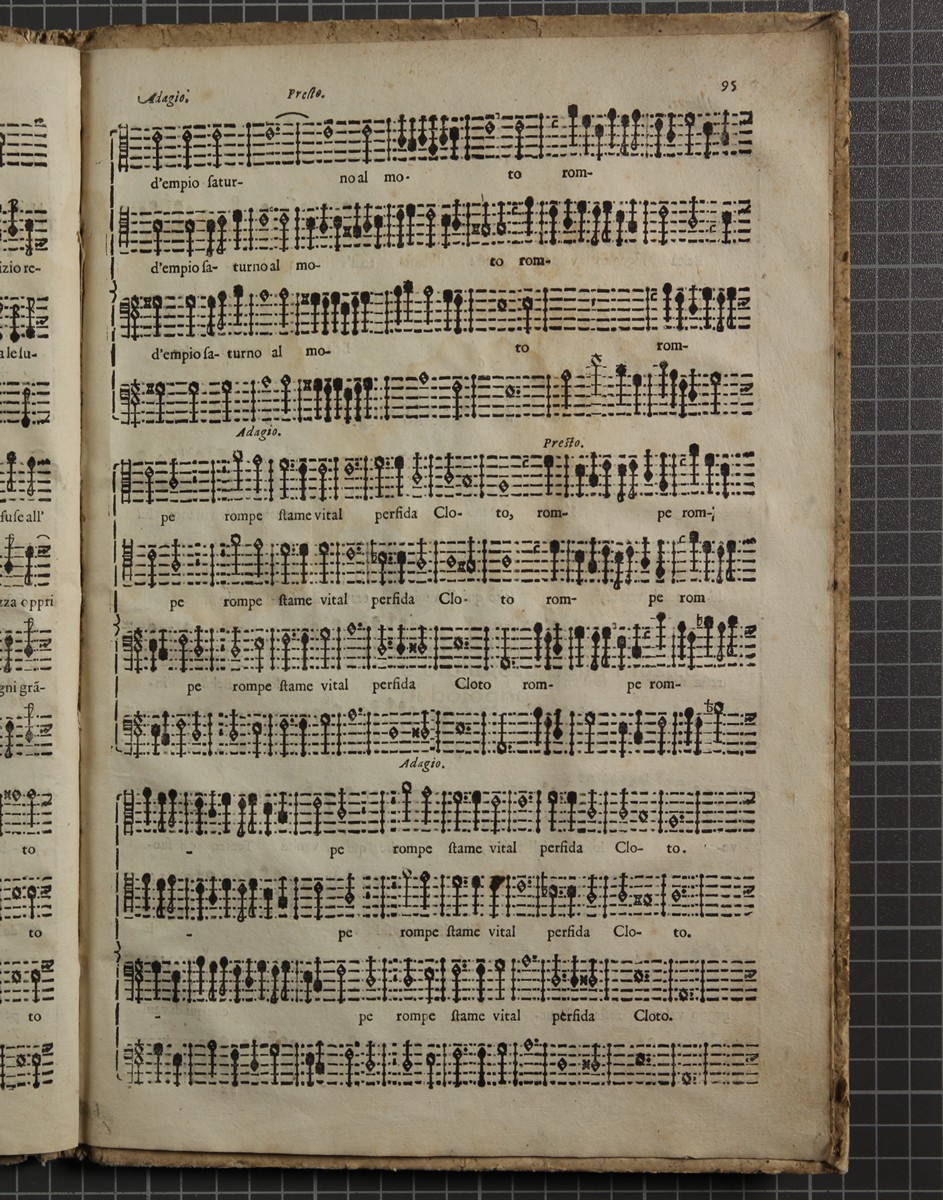 95
Adagio. Presto.
d'empio ſatur- no al mo- to rom-
d'empio ſa- turno al mo- to rom-
izio re-
d'empio ſa- turno al mo- to rom-
a le ſu-
Adagio. Presto.
pe rompe ſtame vital perfida Clo- to, rom- pe rom-;
fuſe all'
pe rompe ſtame vital perfida Clo- to rom- pe rom
zza oppri
pe rompe ſtame vital perfida Cloto rom- pe rom-
gni grã-
Adagio.
- pe rompe ſtame vital perfida Clo- to.
to
- pe rompe ſtame vital perfida Clo- to.
to
- pe rompe ſtame vital perfida Cloto.
to